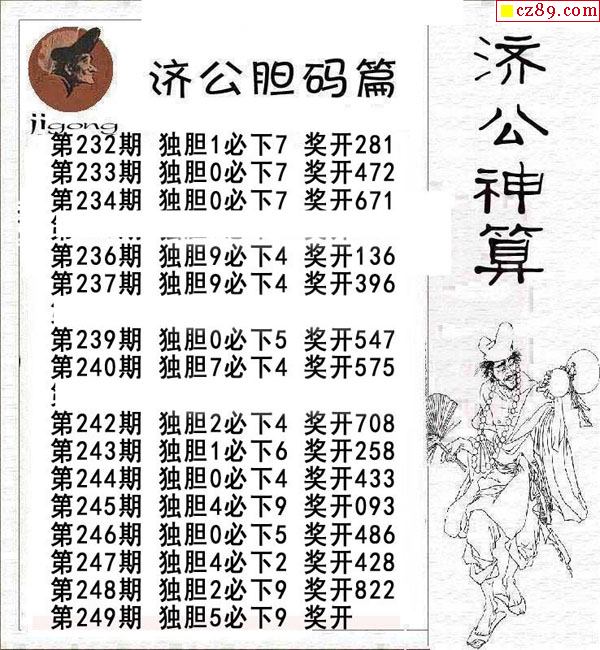 cz89.com
济公胆码篇
jigong
第232期 独胆1必下7 奖开281
第233期 独胆0必下7 奖开472
第234期 独胆0必下7 奖开671
第236期 独胆9必下4 奖开136
第237期 独胆9必下4 奖开396
第239期 独胆0必下5 奖开547
第240期 独胆7必下4 奖开575
第242期 独胆2必下4 奖开708
第243期 独胆1必下6 奖开258
第244期 独胆0必下4 奖开433
第245期 独胆4必下9 奖开093
第246期 独胆0必下5 奖开486
第247期 独胆4必下2 奖开428
第248期 独胆2必下9 奖开822
第249期 独胆5必下9 奖开
济公神算